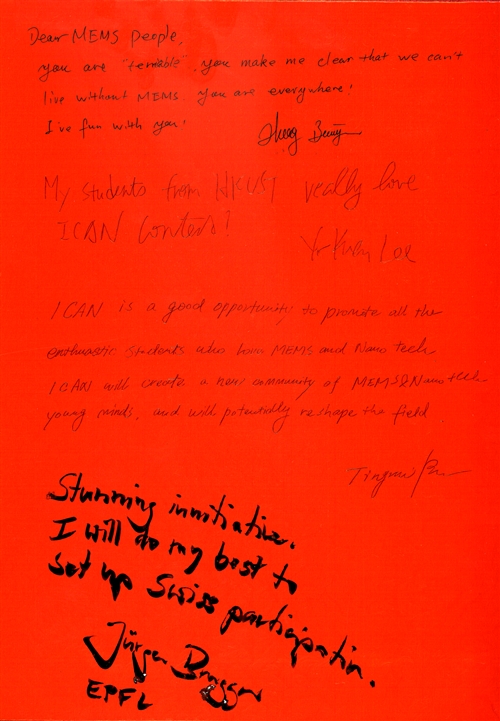 Dear MEMS people,
you are "terrible", you make me clear that we can't
live without MEMS. you are everywhere!
I've fun with you!
My students from HKUST really love
ICAN Contest!
Yi-Kuen Lee
ICAN is a good opportunity to promote all the
enthusastic students who learn MEMS and Nano tech.
ICAN will create a new community of MEMS & Nano tech
young minds, and will potentially reshape the field
Stunning innitiative.
I will do my best to
set up Swiss participation.
Jürgen Brugger
EPFL